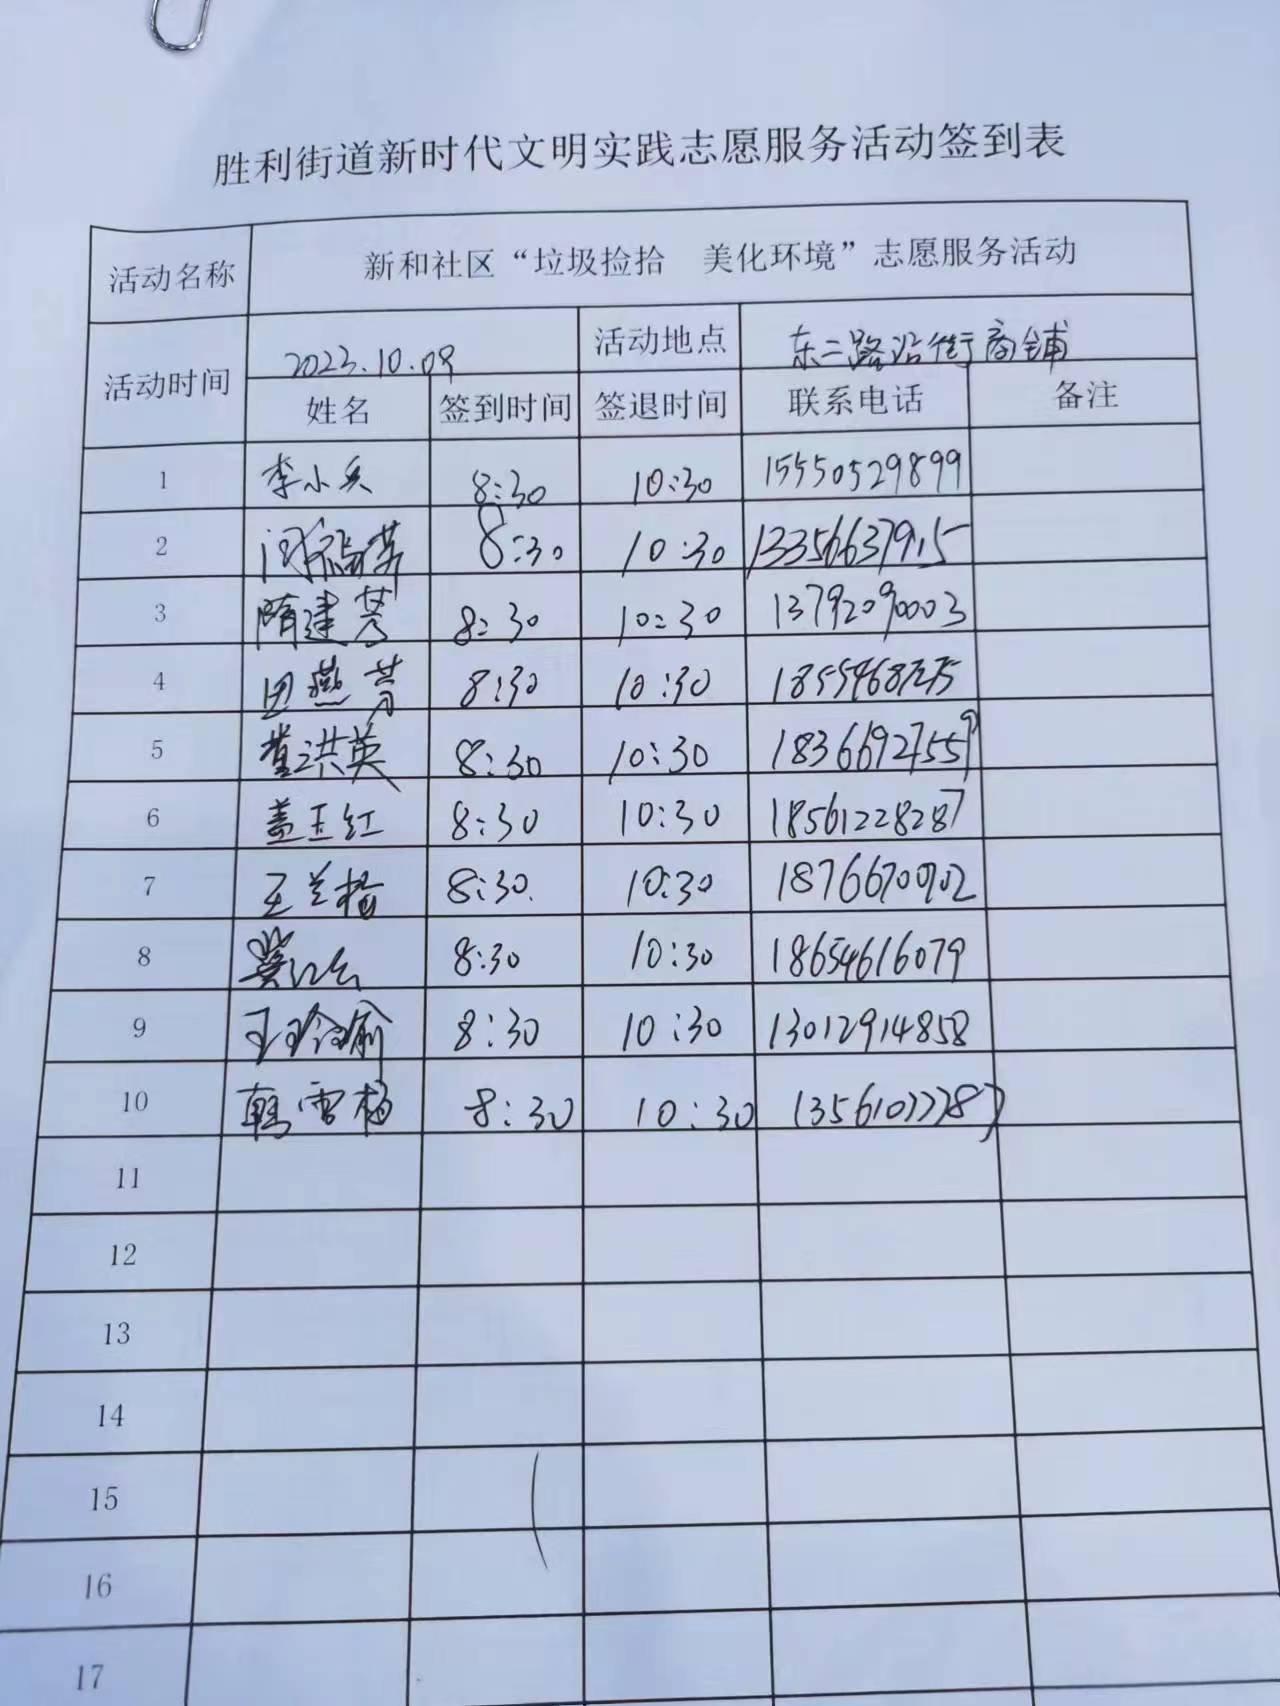 胜利街道新时代文明实践志愿服务活动签到表
活动名称 新和社区“垃圾捡拾 美化环境”志愿服务活动
活动时间 2023.10.09 活动地点 东二路沿街商铺
姓名 签到时间 签退时间 联系电话 备注
1 李小兵 8:30 10:30 15550529899
2 8:30 10:30 13356637915
3 隋建芳 8:30 10:30 13792090003
4 田燕芳 8:30 10:30
5 董洪英 8:30 10:30 18366927559
6 盖玉红 8:30 10:30 18561228287
7 王兰梅 8:30 10:30 18766700902
8 8:30 10:30 18654616079
9 8:30 10:30 13012914858
10 韩雪梅 8:30 10:30
11
12
13
14
15
16
17